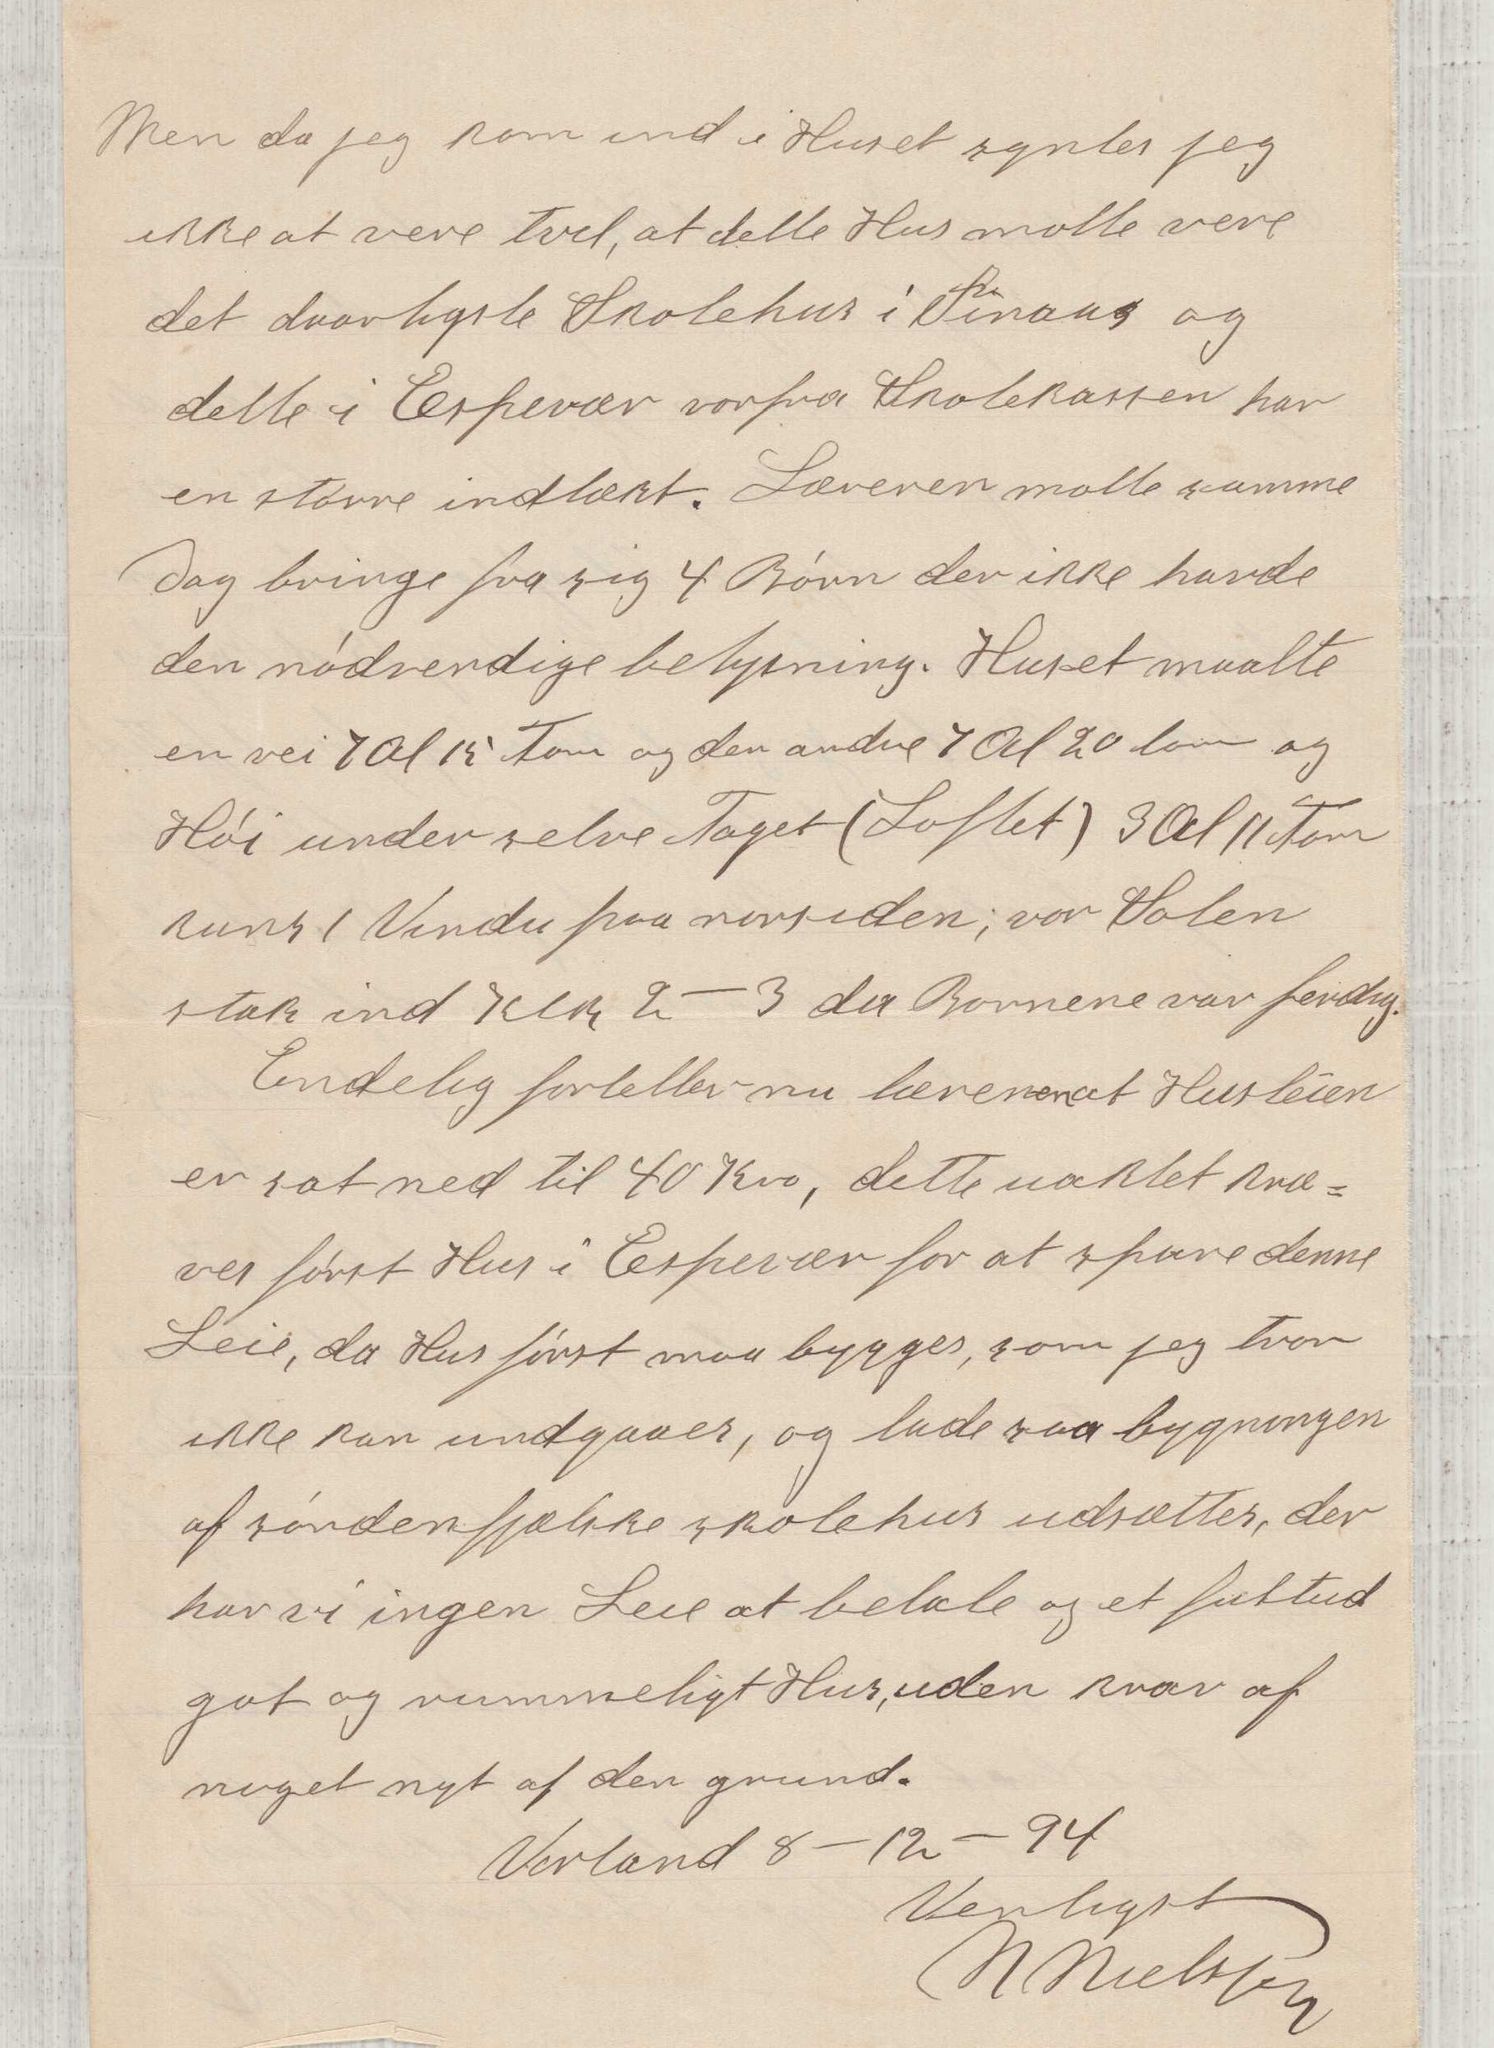 Men da jeg kom ind i Huset syntes jeg
ikke at vere tvil, at dette Hus motte vere
det daarligste Skolehus i Finaas og
dette i Espevær vorfra Skolekassen har
en större indtækt. Læreren motte samme
Dag bringe fra sig 4 Börn der ikke havde
den nödvendige belysning. Huset maalte
en vei 7 Al 15 Tom og den andre 7 Al 20 tom og
Höi under selve Taget (Loftet) 3 Al 11 Tom
kuns 1 Vindu paa norsiden; vor Solen
stak ind Klk 2 — 3 da Bornene var ferdig.
Endelig forteller nu læreren at Husleien
er sat ned til 40 Kro, dette uaktet kræ=
ves först Hus i Espevær for at spare denne
Leie, da Hus först maa bygges, som jeg tror
ikke kan undgaaes, og lade saa bygningen
af söndenfjælske skolehus udsættes, der
har vi ingen Leie at betale og et
got og rummeligt Hus, uden krav af
noget nyt af den grund.
Vorland 8 — 12 — 94
Venligst
N Nielsen